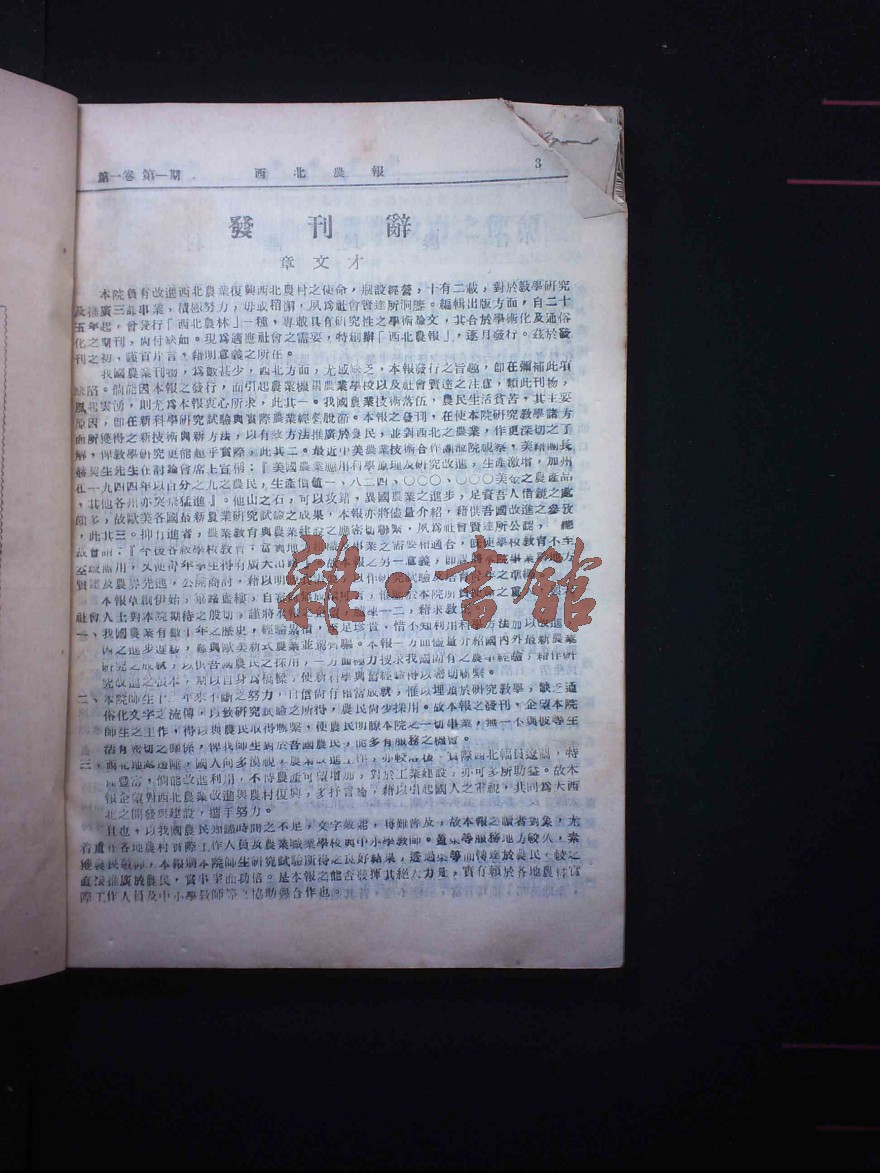 第一卷 第一期 西北農報 3
發刊辭
章文才
本院負有改進西北農業復興西北農村之使命,剏設經營,十有二載,對於教學研究
及推廣三部事業,積極努力,毋或稍懈,夙為社會賢達所洞鑒。編輯出版方面,自二十
五年起,曾發行「西北農林」一種,專載具有研究性之學術論文,其合於學術化及通俗
化之期刊,尚付缺如。現為適應社會之需要,特創辦「西北農報」,逐月發行。茲於發
刊之初,謹首片言,藉明意義之所在。
我國農業刊物,為數甚少,西北方面,尤感缺乏,本報發行之旨趣,即在彌補此項
缺陷。倘能因本報之發行,而引起農業機關農業學校以及社會賢達之注意,類此刊物,
風起雲湧,則尤為本報衷心所求,此其一。我國農業技術落伍,農民生活貧苦,其主要
原因,即在新科學研究試驗與實際農業經營脫節。本報之發刊,在使本院研究教學諸方
面所獲得之新技術與新方法,以有效方法推廣於農民,並對西北之農業,作更深切之了
解,俾教學研究更能趨乎實際,此其二。最近中美農業技術合作團蒞院視察,美籍團長
生先生在討論會席上宣稱:『美國農業應用科學原理及研究改進,生產激增,加州
在一九四四年以百分之九之農民,生產價值一、八二四、〇〇〇、〇〇〇美金之農產品
,其他各州亦突飛猛進』。他山之石,可以攻錯,異國農業之進步,足資吾人借鏡之處
頗多,故歐美各國最新農業研究試驗之成果,本報亦將儘量介紹,藉供吾國改進之參攷
,此其三。抑有進者,農業教育與農業建設之應密切聯繫,夙為社會賢達所公認,總
故會謂:『今後各級學校教育,當與地方 事業之需要相適合,既使學校教育不至
應用,又使青年學生得有廣大出路 故本報之另一意義,即 本院學業 地方
賢達及農界先進,公開商討,藉以明 以作研究試驗及 準
本報草創伊始,篳路藍縷,自 本院所負使命之重
社會人士對本院期待之殷切,謹將本報之 一二,藉求教
一、我國農業有數千年之歷史,經驗累積, 足珍貴,惜不知利用科學方法加以改進,
因之進步遲緩,難與歐美新式農業並駕齊驅。本報一方面儘量介紹國內外最新農業
研究之成就,以供吾國農民之採用,一方面極力搜求我國固有之農事經驗,藉作研
究改進之張本,期以自身為橋樑,使新科學與舊經驗得以密切聯繫。
二、本院師生十二年來不斷之努力,自信尚有相當成就,惟以埋頭於研究教學,缺乏通
俗化文字之流傳,以致研究試驗之所得,農民尚少採用。故本報之發刊,企望本院
師生之工作,得以與農民取得聯繫,使農民明瞭本院之一切事業,無一不與彼等生
活有密切之關係,俾我師生對於吾國農民,能多有服務之機會。
三、西北地處邊陲,國人向多漠視,農業改進工作,亦較落後。實際西北幅員遼闊,特
產豐富,倘能改進利用,不特農產可望增加,對於工業建設,亦可多所助益。故本
報企望對西北農業改進與農村復興,多抒言論,藉以引起國人之重視,共同為大西
北之開發與建設,攜手努力。
且也,以我國農民知識時間之不足,文字效能,得難普及,故本報之讀者對象,尤
着重在各地農村實際工作人員及農業職業學校與中小學教師。蓋某等服務地方較久,素
獲農民敬仰,本報期本院師生研究試驗所得之良好結果,透過某等而傳達於農民,較之
直接推廣於農民,實事半而功倍。是本報之能否發揮其絕大力量,實有賴於各地農村實
際工作人員及中小學教師等之協助與合作也。
雜·書館